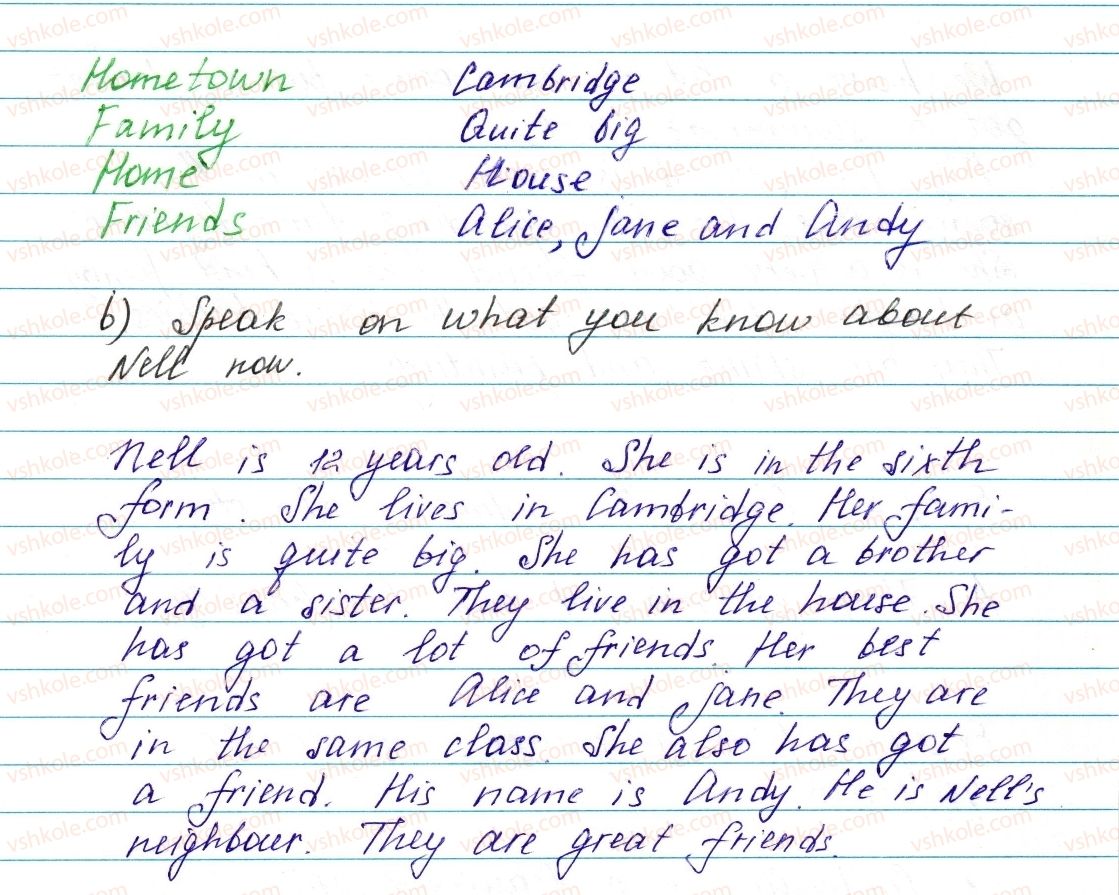 Hometown Cambridge
Family Quite big
Home House
Friends Alice, Jane and Andy
b) Speak on what you know about
Nell now.
Nell is 12 years old. She is in the sixth
form. She lives in Cambridge. Her fami-
ly is quite big. She has got a brother
and a sister. They live in the house. She
has got a lot of friends. Her best
friends are Alice and Jane. They are
in the same class. She also has got
a friend. His name is Andy. He is Nell's
neighbour. They are great friends.